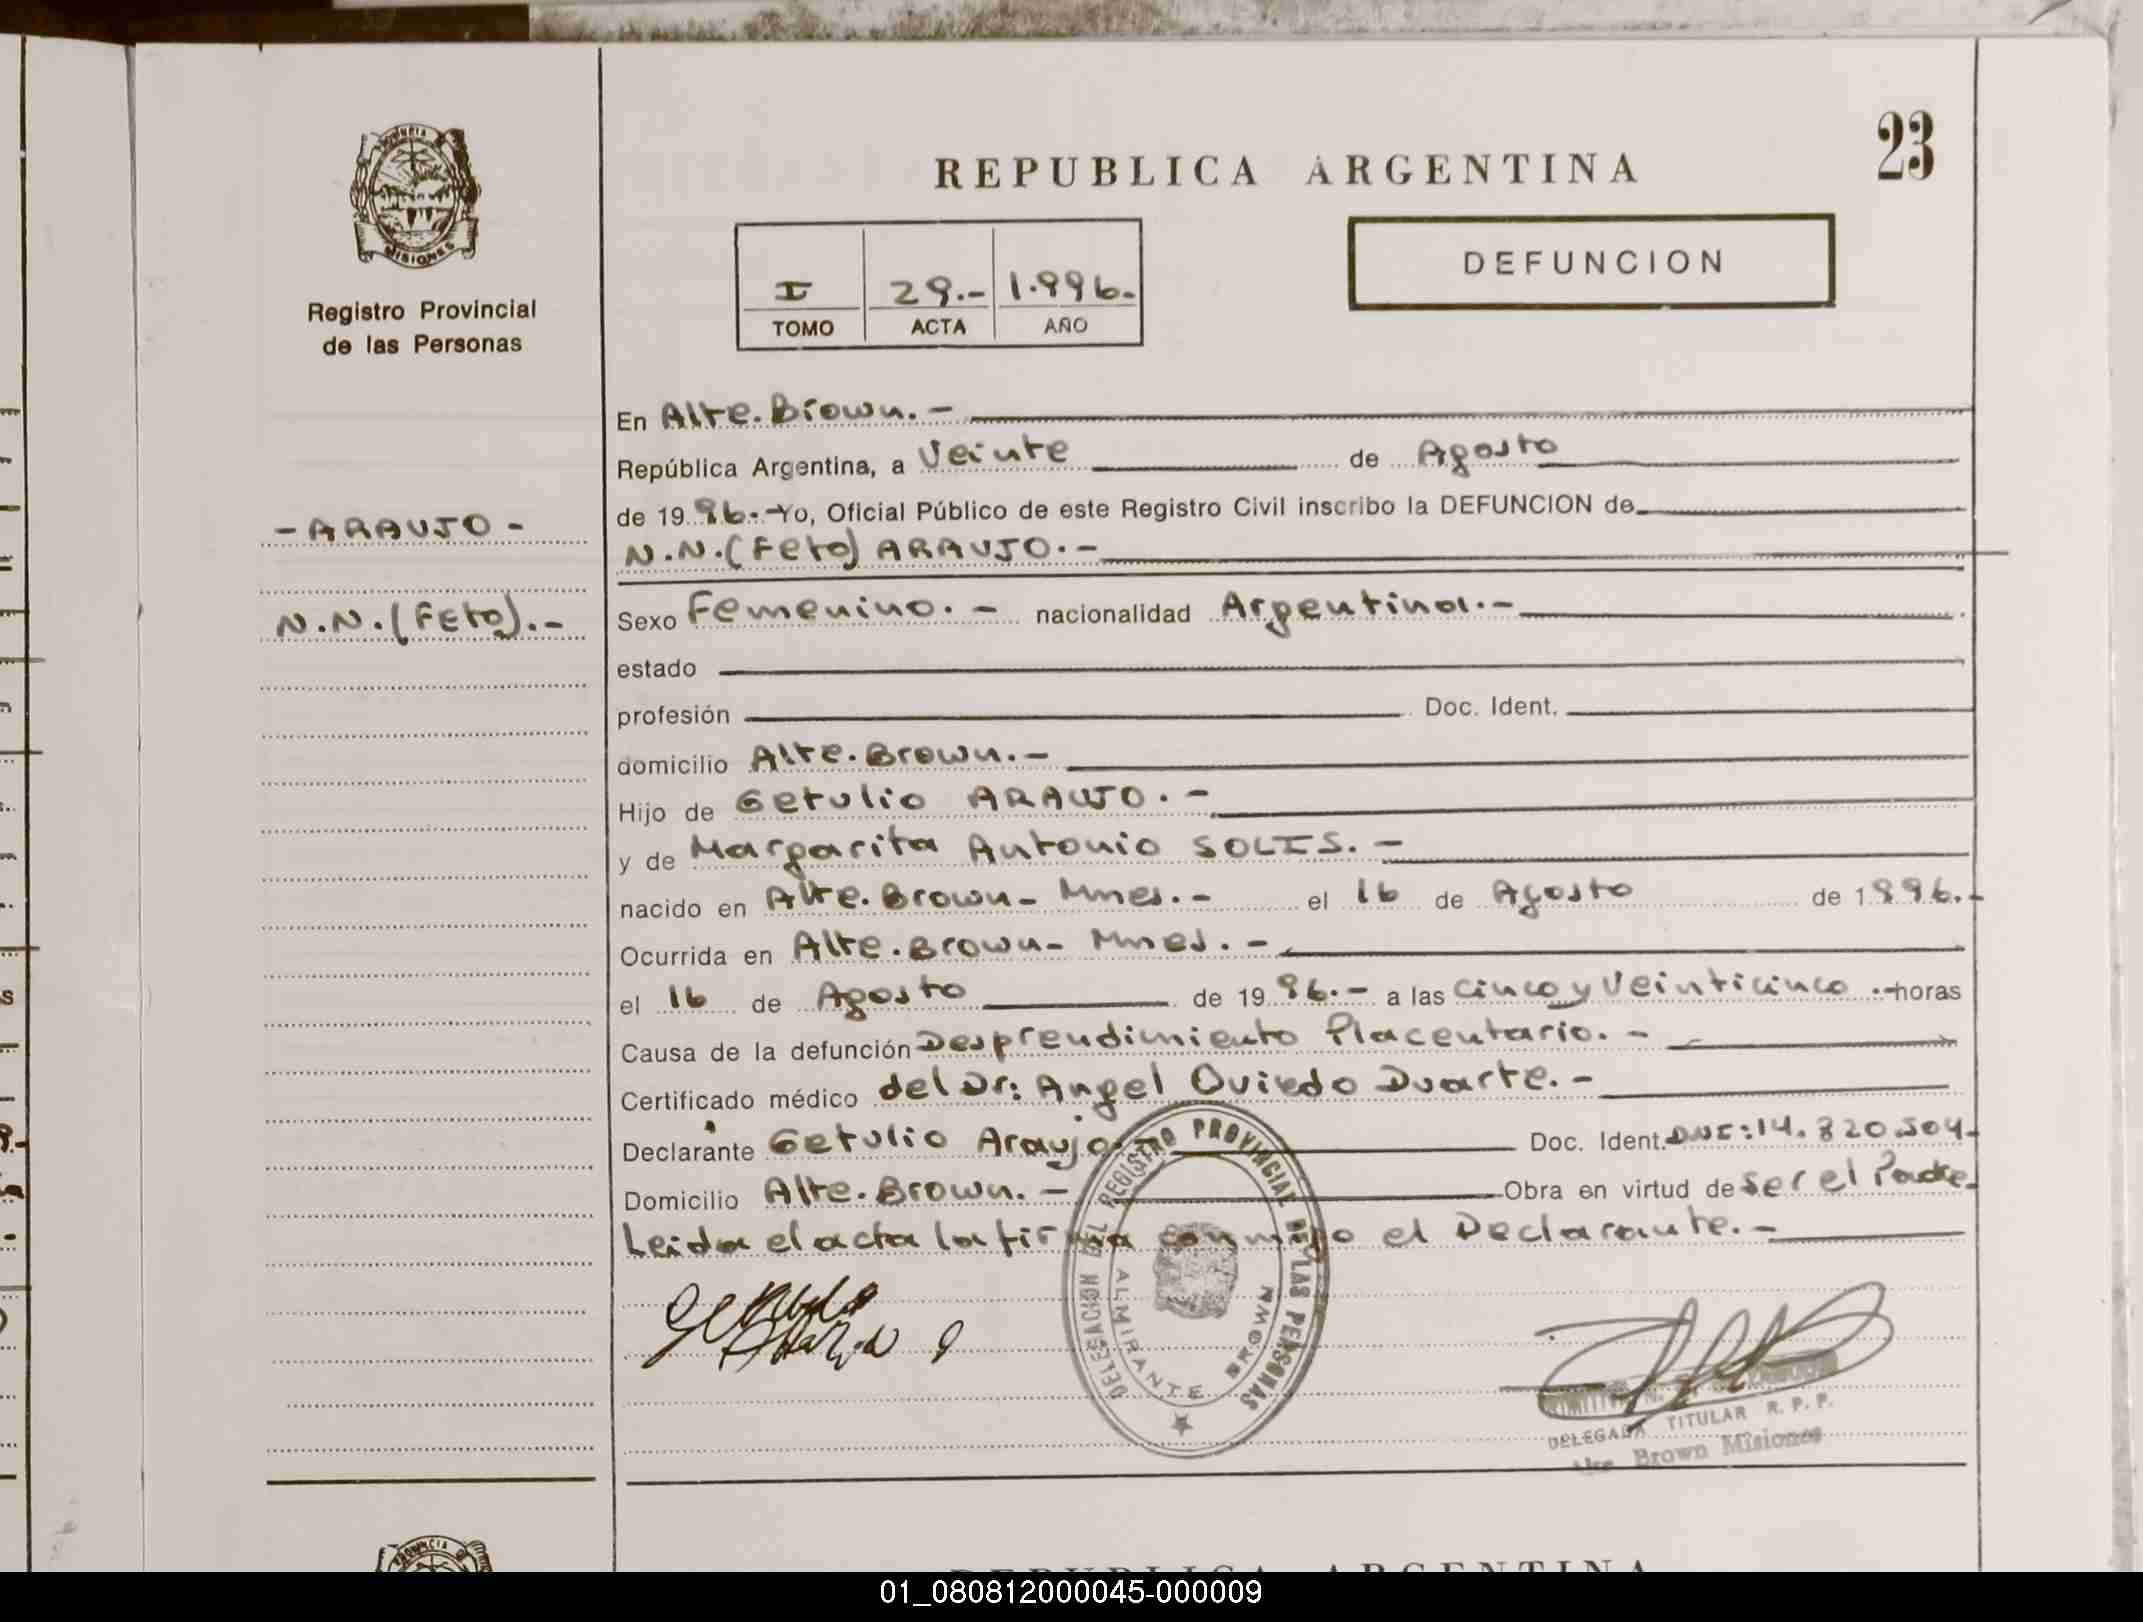 PROVINCIA
MISIONES
Registro Provincial
de las Personas
- ARAUJO -
N.N. (FETO).-
REPUBLICA ARGENTINA
23
I 29.- 1.996.-
TOMO ACTA AÑO
DEFUNCION
En Alte. Brown. -
República Argentina, a Veinte de Agosto
de 19 96.- Yo, Oficial Público de este Registro Civil inscribo la DEFUNCION de
N.N. (Feto) ARAUJO. -
Sexo Femenino. - nacionalidad Argentina. -
estado
profesión Doc. Ident.
domicilio Alte. Brown. -
Hijo de Getulio ARAUJO. -
y de Margarita Antonio SOLIS. -
nacido en Alte. Brown - Mnes. - el 16 de Agosto de 1996. -
Ocurrida en Alte. Brown - Mnes. -
el 16 de Agosto de 19 96. - a las Cinco y Veinticinco .- horas
Causa de la defunción Desprendimiento Placentario. -
Certificado médico del Dr: Angel Oviedo Duarte. -
Declarante Getulio Araujo Doc. Ident. DNI: 14.820.504-
Domicilio Alte. Brown. - Obra en virtud de Ser el Padre
Leida el acta la firma conmigo el Declarante. -
DELEGACION DEL REGISTRO PROVINCIAL DE LAS PERSONAS
ALMIRANTE BROWN
DELEGADA TITULAR R. P. P.
Alte Brown Misiones
REPUBLICA ARGENTINA
01_080812000045-000009